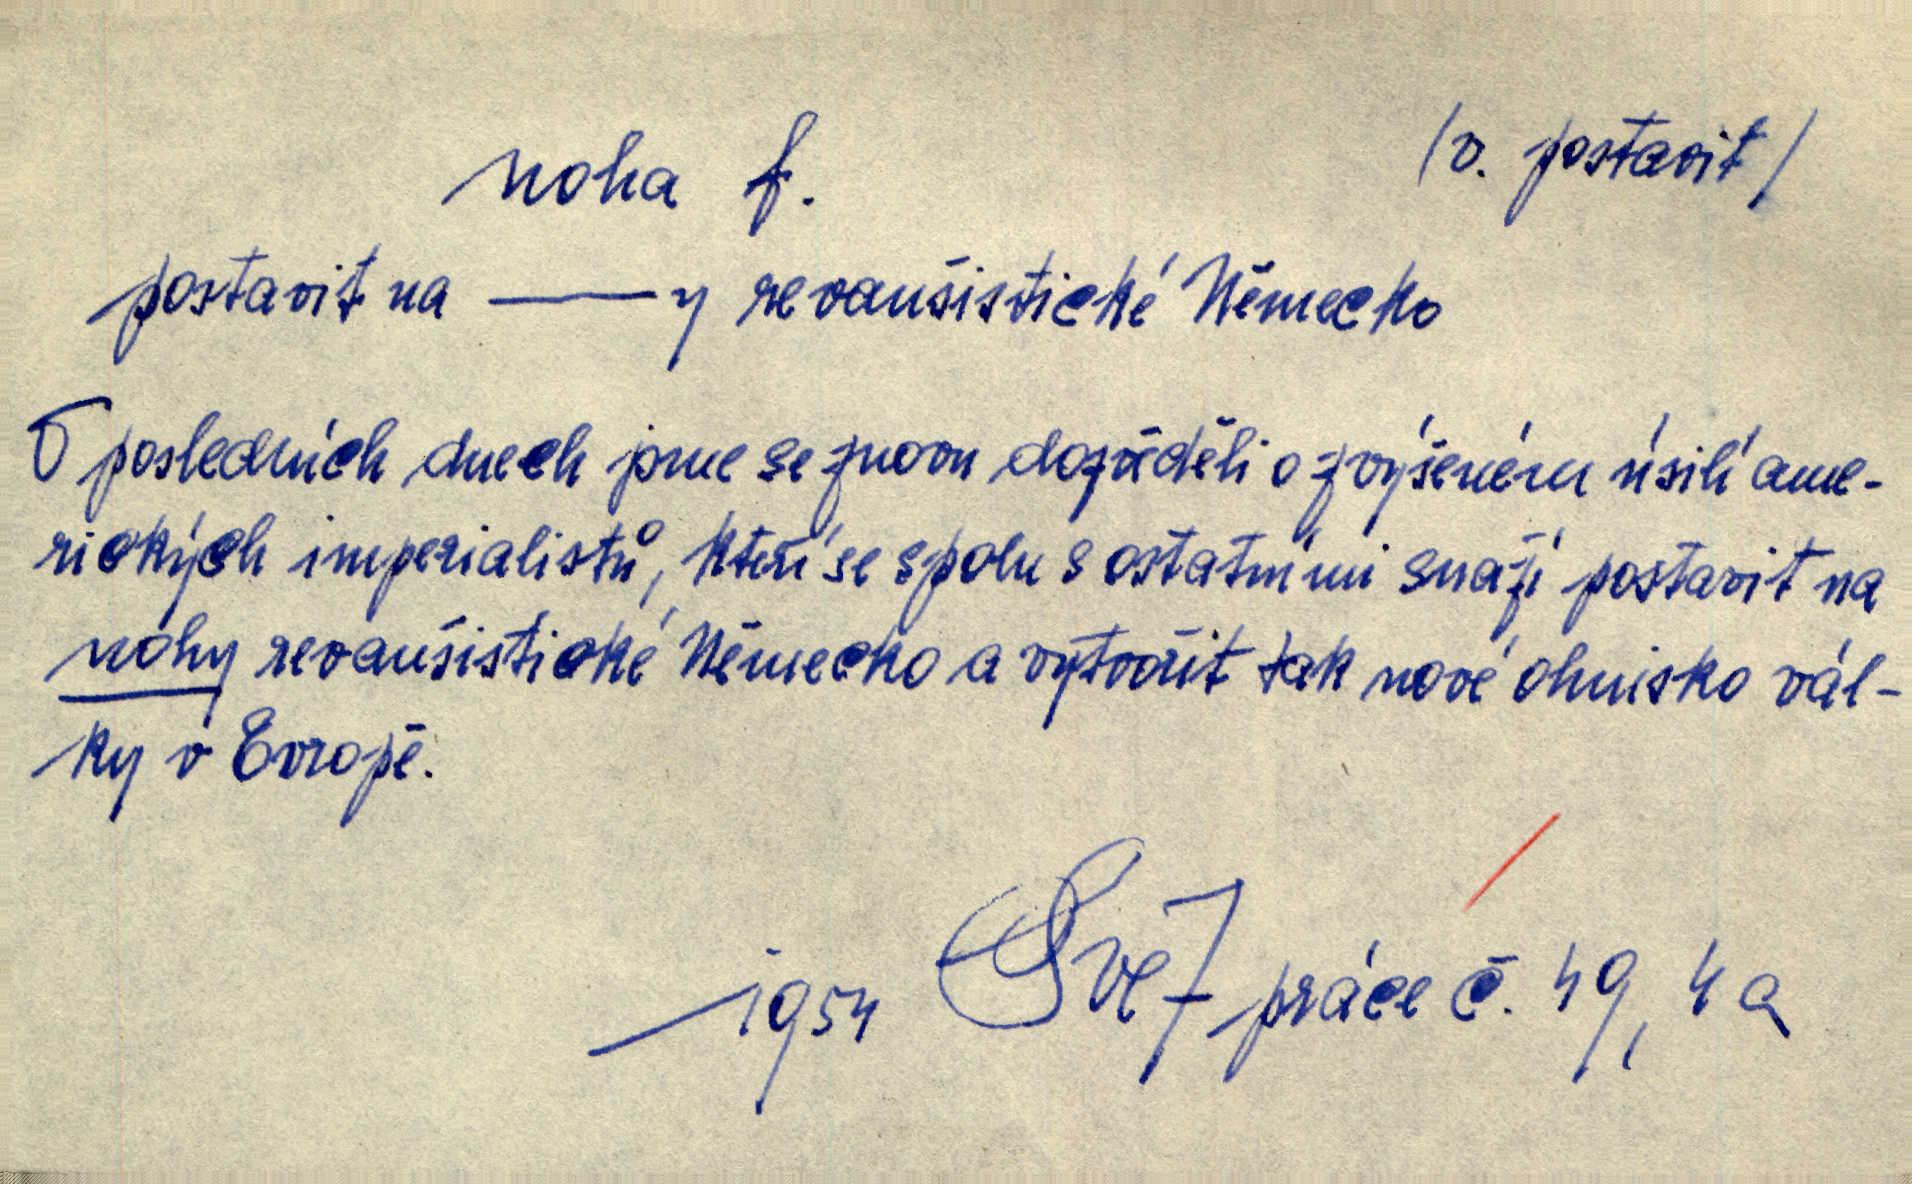 noha f. /v. postavit/
postavit na —y revanšistické Německo
V posledních dnech jsme se znovu dozvěděli o zvýšeném úsilí ame-
rických imperialistů, kteří se spolu s ostatními snaží postavit na
nohy revanšistické Německo a vytvořit tak nové ohnisko vál-
ky v Evropě.
1954 Svět práce č. 49, 4a